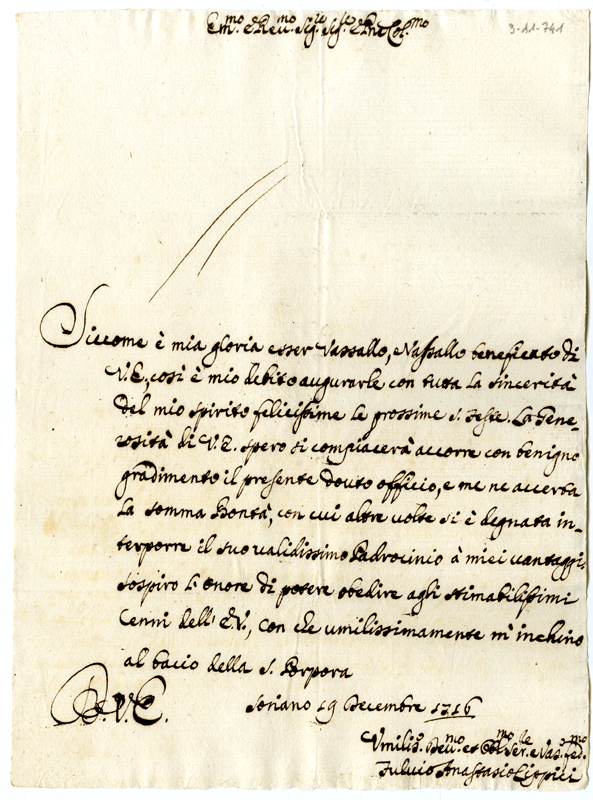 Em.mo e Reu.mo Sig.re Sig.re e Pne Col.mo
3-11-741
Siccome è mia gloria esser Vassallo, e Vassallo beneficato di
V.E., così è mio debito augurarle con tutta la sincerità
del mio spirito felicissime le prossime S. Feste. La Gene-
rosità di V.E. spero si compiacerà accorre con benigno
gradimento il presente douto officio, e me ne accerta
La somma Bontà, con cui altre volte si è degnata in-
terporre il suo validissimo Padrocinio à miei vantaggi.
Sospiro L'onore di potere obedire agli stimabilissimi
Cenni dell' E.V., con che umilissimamente m'inchino
al bacio della S. Porpora
Soriano 19 Decembre 1716
D. V. E.
Vmiliss.o Deu.mo et Obl.mo Ser.e e Vas.o fed.mo
Fuluio Anastasio Lippici